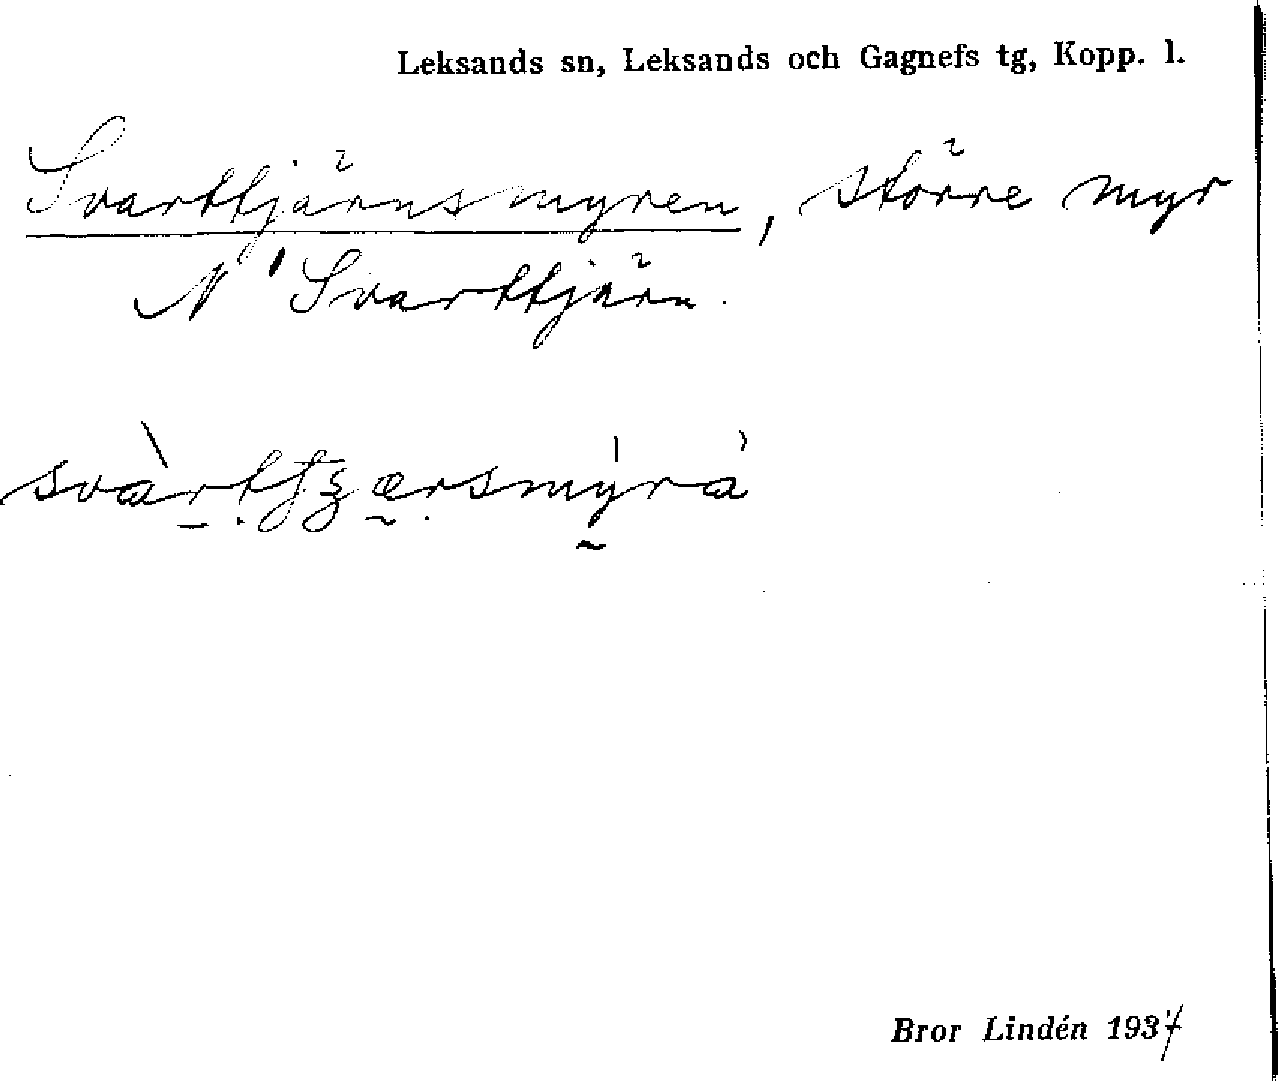 Leksands sn, Leksands och Gagnefs tg, Kopp. l.
Svarttjärnsmyren, större myr
N Svarttjärn.
Bror Lindén 1937